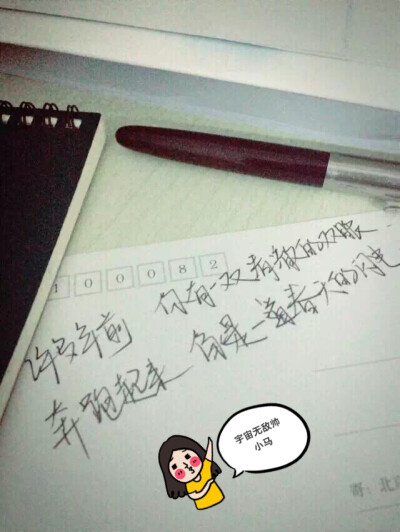 100082
许多年前 你有一双清澈的双眼
奔跑起来 像是一道春天的闪电
宇宙无敌帅
小马
寄：北